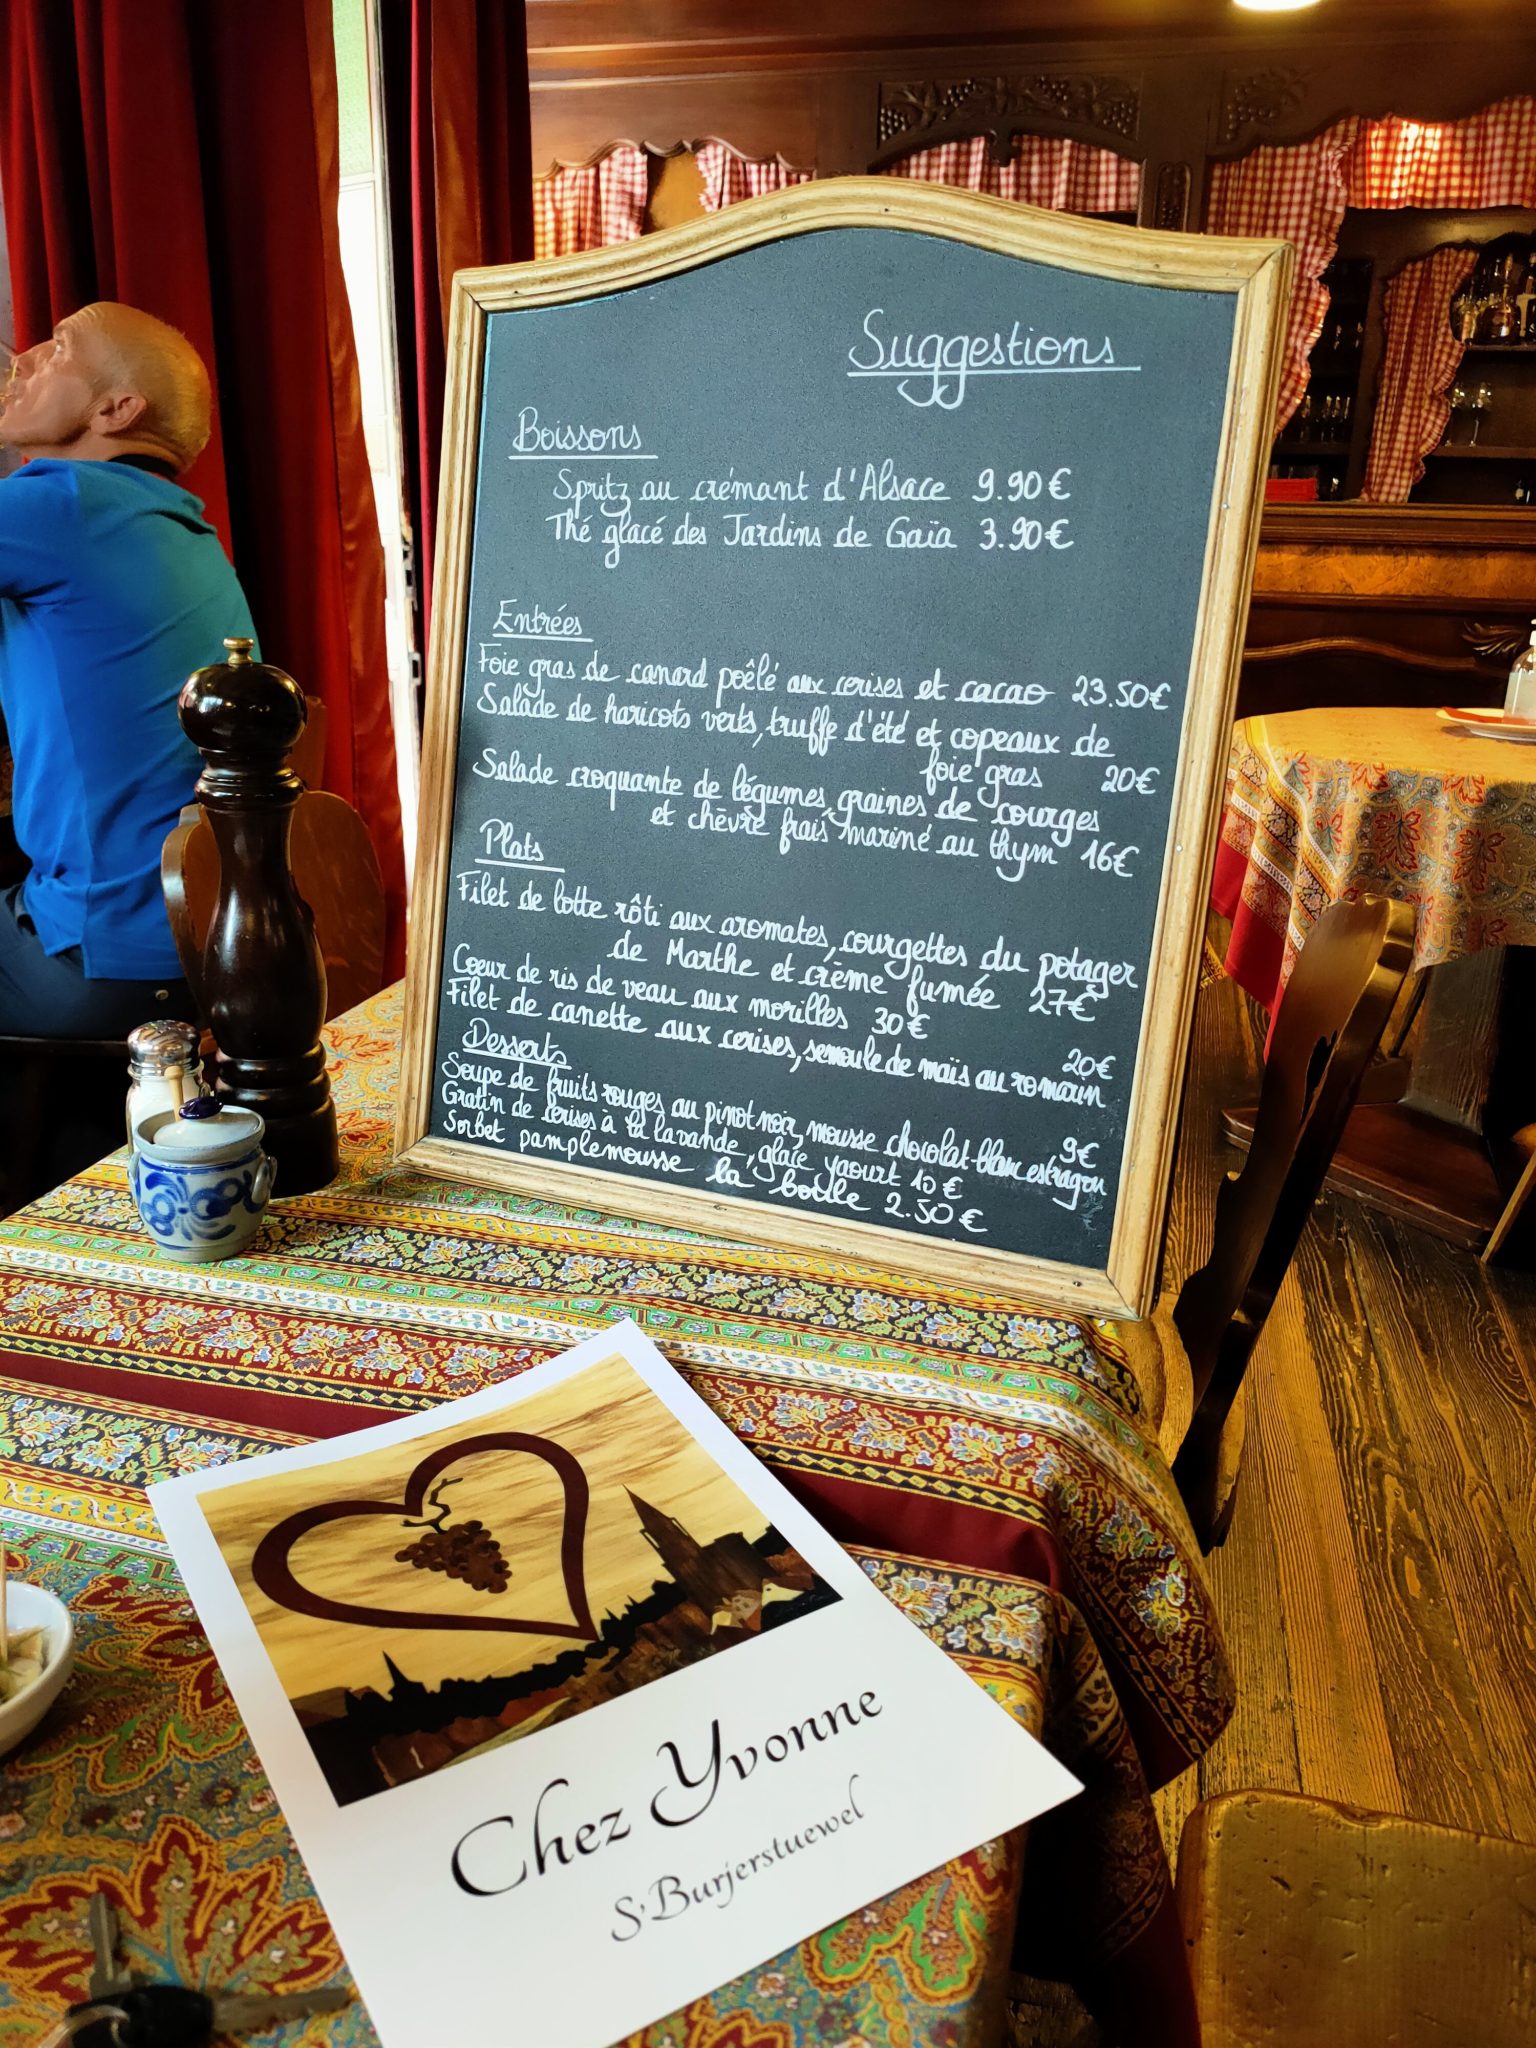 Suggestions
Boissons
Spritz au crémant d'Alsace 9.90€
Thé glacé des Jardins de Gaïa 3.90€
Entrées
Foie gras de canard poêlé aux cerises et cacao 23.50€
Salade de haricots verts, truffe d'été et copeaux de
foie gras 20€
Salade croquante de légumes, graines de courges
et chèvre frais mariné au thym 16€
Plats
Filet de lotte rôti aux aromates, courgettes du potager
de Marthe et crème fumée 27€
Coeur de ris de veau aux morilles 30€
Filet de canette aux cerises, semoule de maïs au romarin 20€
Desserts
Soupe de fruits rouges au pinot noir, mousse chocolat-blanc estragon 9€
Gratin de cerises à la lavande, glace yaourt 10€
Sorbet pamplemousse la boule 2.50€
Chez Yvonne
S'Burjerstuewel